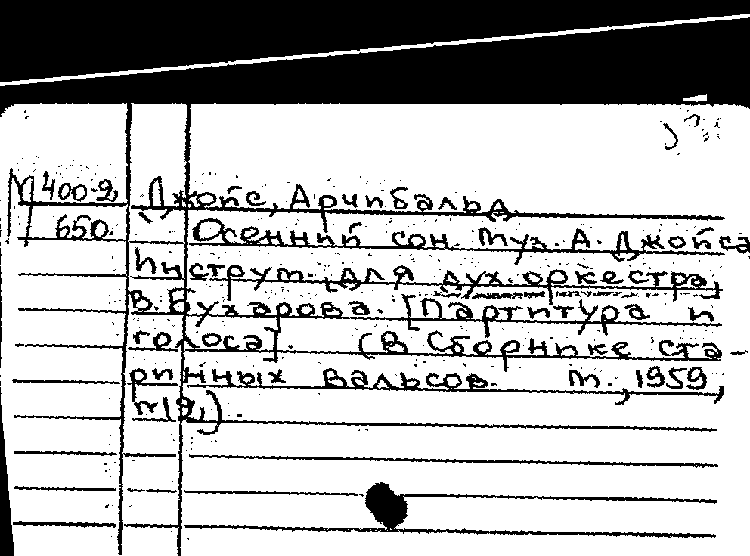 М 400-2, Джойс, Арчибальд
650. Осенний сон. Муз. А. Джойса
Инструм. для дух. оркестра,
В. Бухарова. [Партитура и
голоса]. (В Сборнике ста-
ринных вальсов. М., 1959,